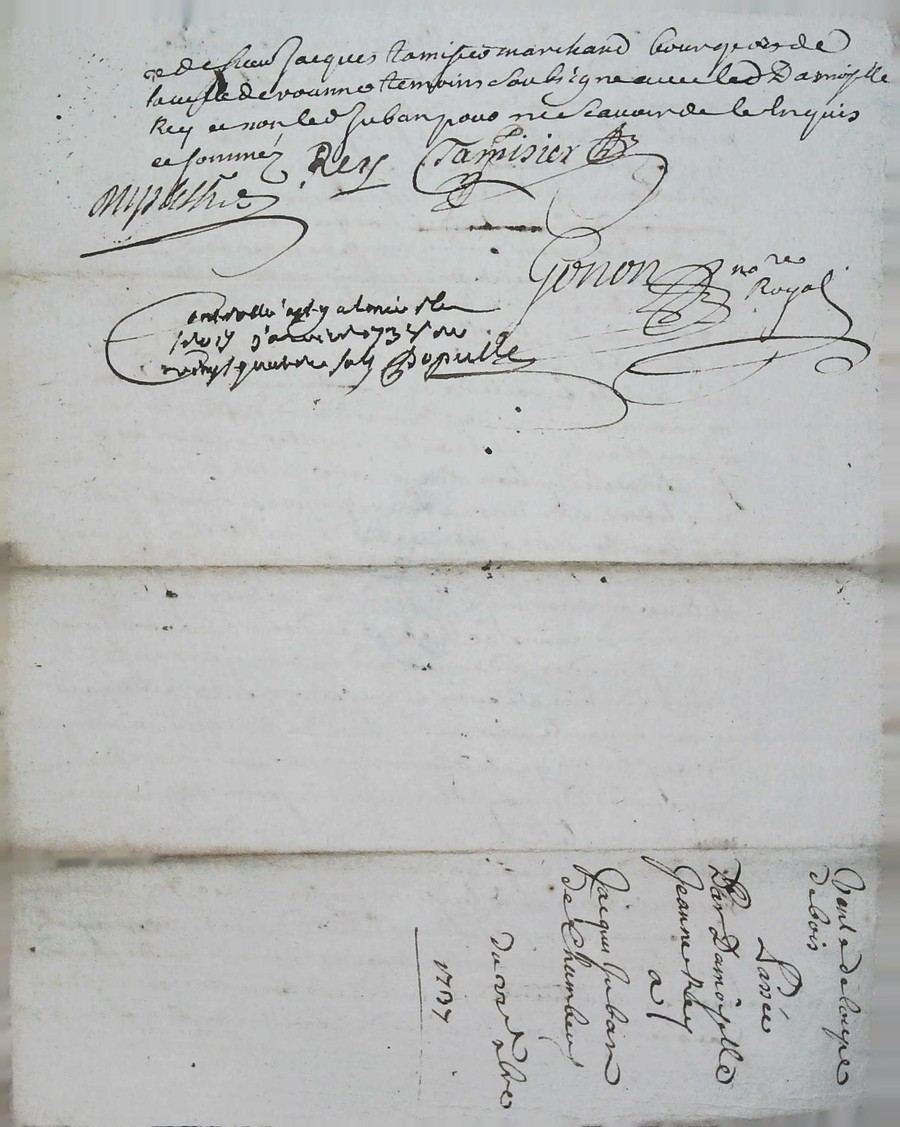 et de sieur Jacques tamisier marchand bourgeois de
la ville de rouanne temoins soubsigne avec lad Damoyselle
Rey et non led Juban pour ne scavoir de ce Enquis
et sommé
Rey Tamisier
Gonon no re
Royal
Controllé
janvier 1737
vingt quatre sols Populle
Vente de coupe
de bois
Passée
Par Damoyselle
Jeanne Rey
a
Jacques Juban
de Chambeus
Du
1737